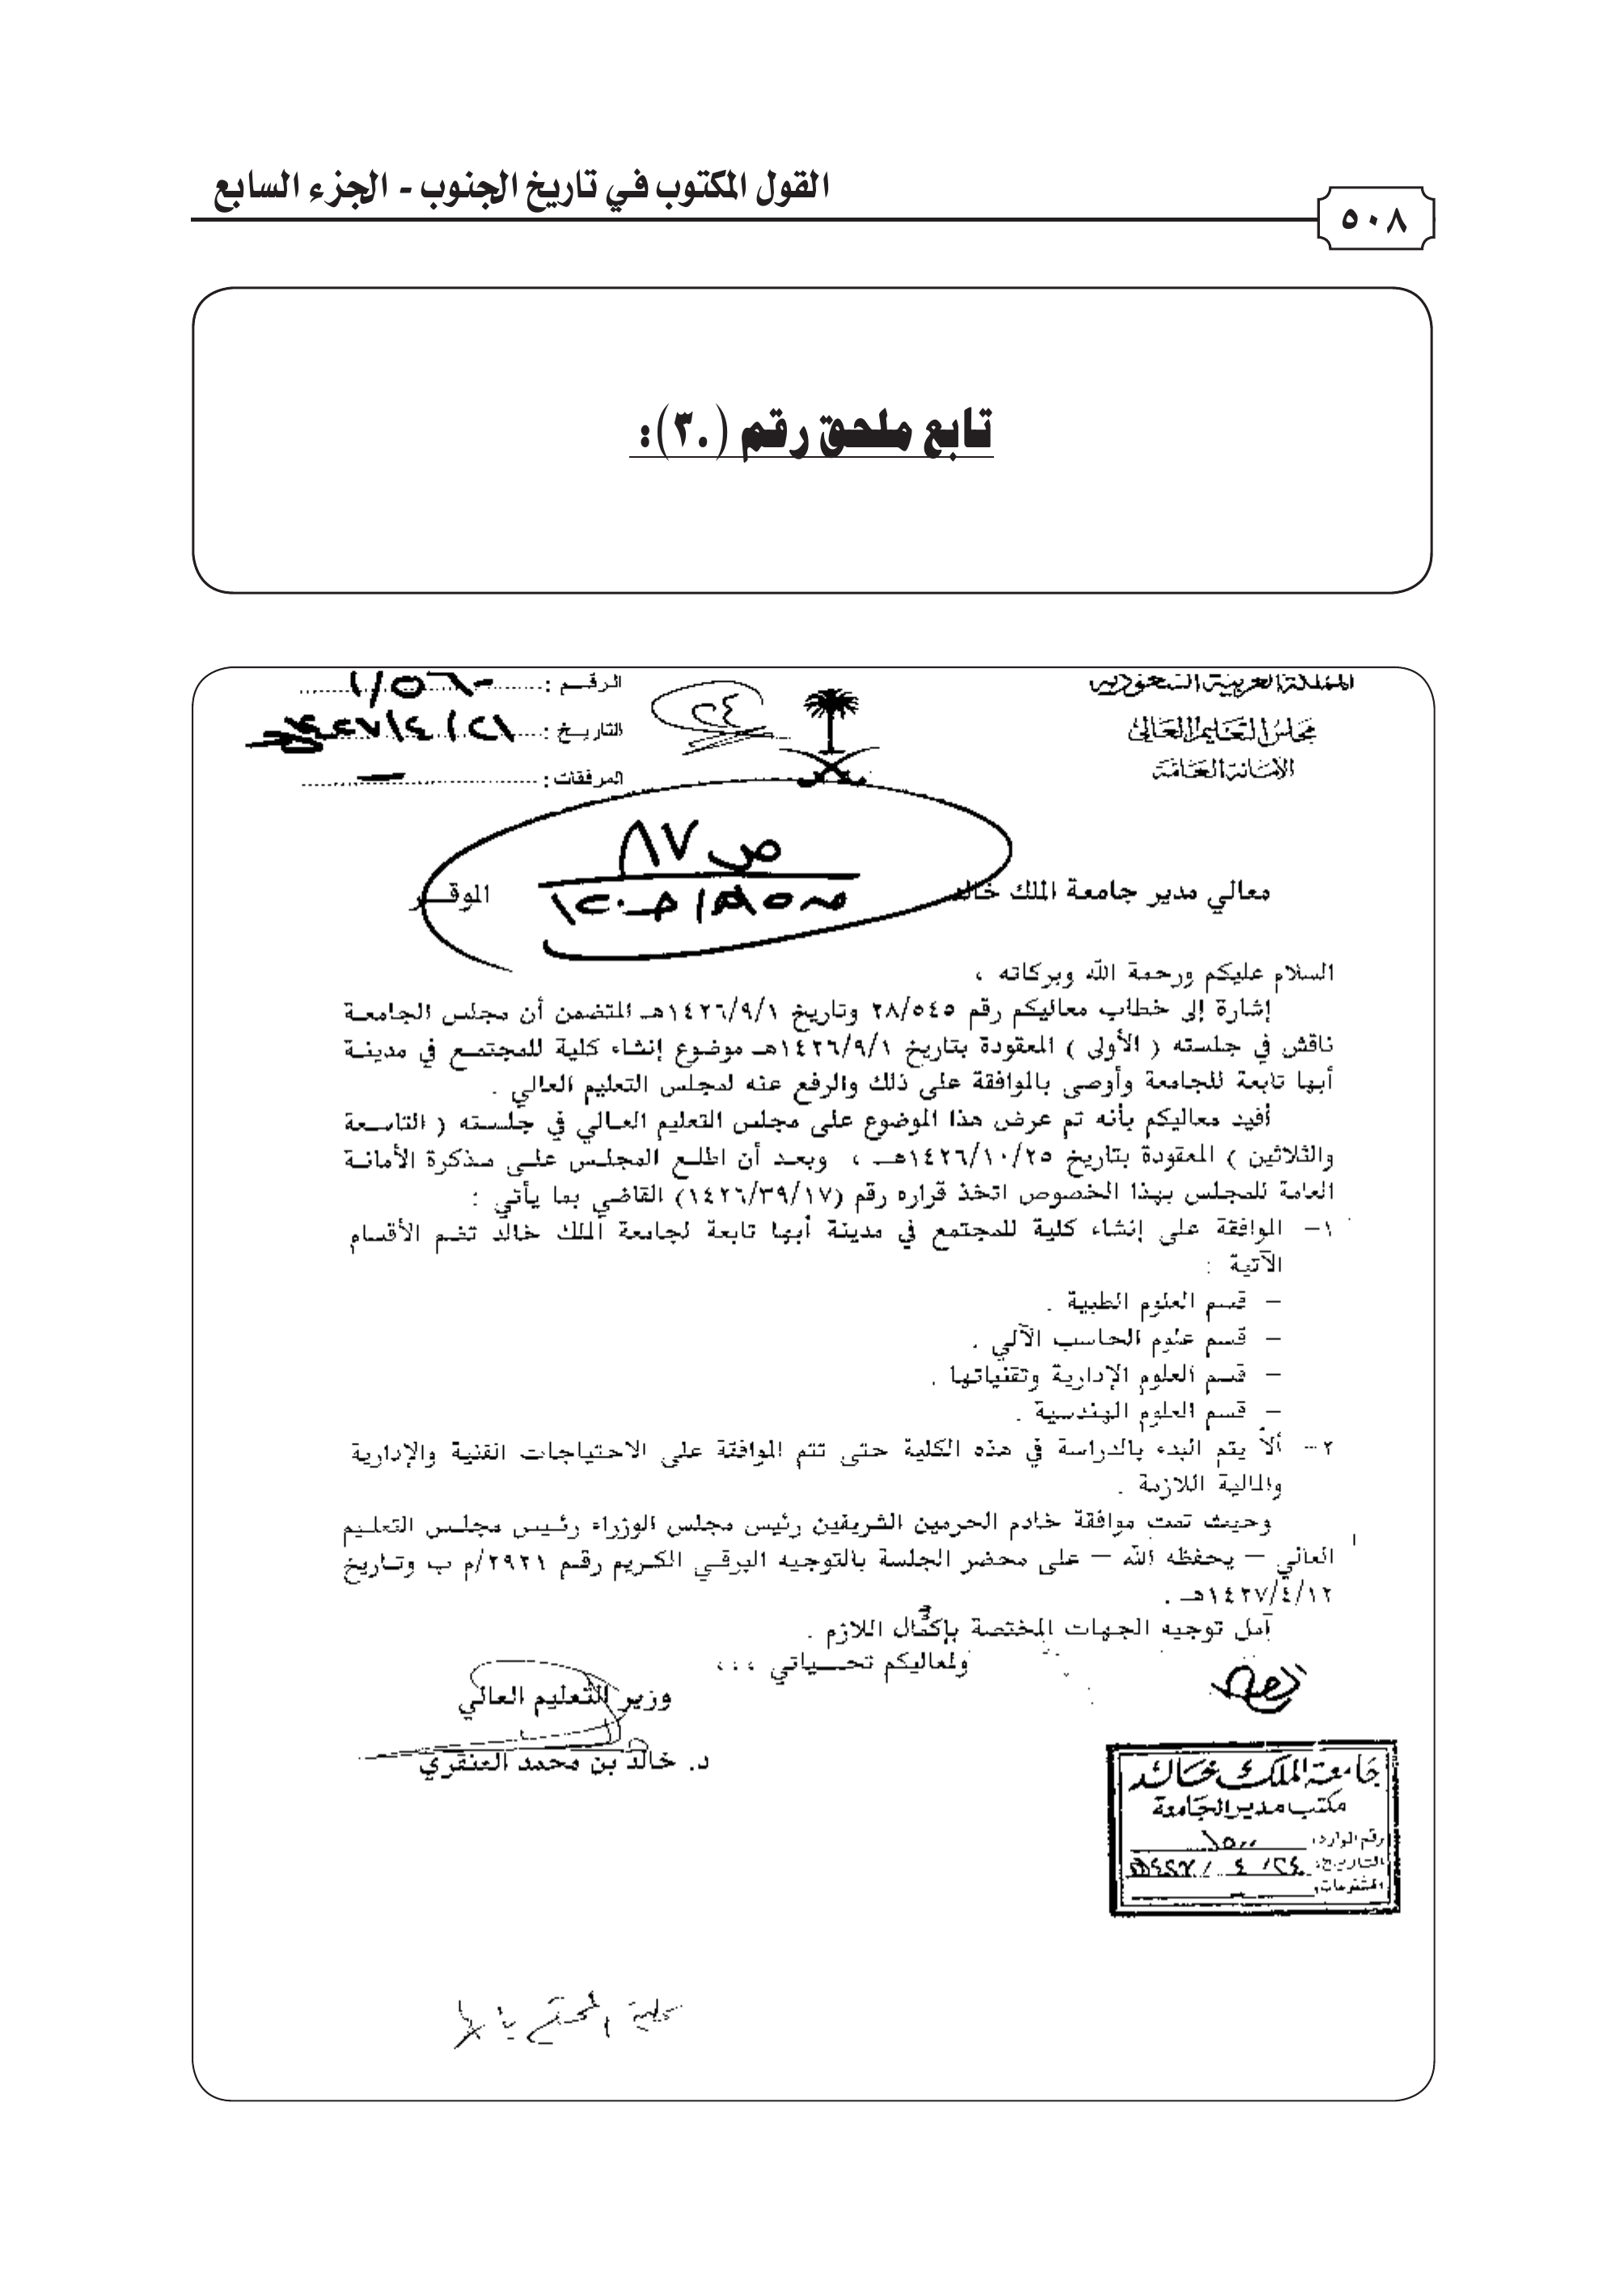 القول المكتوب في تاريخ الجنوب - الجزء السابع
٥٠٨
تابع ملحق رقم (٣٠):
المملكة العربية السعودية
مجلس التعليم العالي
الأمانة العامة
الرقـم :
التاريـخ : ٢١/٤/١٤٢٧
المرفقات : —
٢٤
ص ٨٧
معالي مدير جامعة الملك خالد
الموقـــر
السلام عليكم ورحمة الله وبركاته ،
إشارة إلى خطاب معاليكم رقم ٢٨/٥٤٥ وتاريخ ١٤٢٦/٩/١هـ المتضمن أن مجلس الجامعـة
ناقش في جلسته ( الأولى ) المعقودة بتاريخ ١٤٢٦/٩/١هـ موضوع إنشاء كلية للمجتمـع في مدينـة
أبها تابعة للجامعة وأوصى بالموافقة على ذلك والرفع عنه لمجلس التعليم العالي .
أفيد معاليكم بأنه تم عرض هذا الموضوع على مجلس التعليم العـالي في جلسـته ( التاسـعة
والثلاثين ) المعقودة بتاريخ ١٤٢٦/١٠/٢٥هـ ، وبعـد أن اطلـع المجلـس علـى مـذكرة الأمانـة
العامة للمجلس بهذا الخصوص اتخذ قراره رقم (١٤٢٦/٣٩/١٧) القاضي بما يأتي :
١– الموافقة على إنشاء كلية للمجتمع في مدينة أبها تابعة لجامعة الملك خالد تضم الأقسام
الآتية :
– قسم العلوم الطبية .
– قسم علوم الحاسب الآلي .
– قسم العلوم الإدارية وتقنياتها .
– قسم العلوم الهندسية .
٢– ألاّ يتم البدء بالدراسة في هذه الكلية حتى تتم الموافقة على الاحتياجات الفنية والإدارية
والمالية اللازمة .
وحيث تمت موافقة خادم الحرمين الشريفين رئيس مجلس الوزراء رئـيس مجلـس التعلـيم
العالي – يحفظه الله – على محضر الجلسة بالتوجيه البرقـي الكـريم رقـم ٢٩٢١/م ب وتـاريخ
١٤٢٧/٤/١٢هـ .
آمل توجيه الجهات المختصة بإكمال اللازم .
ولمعاليكم تحـــياتي ،،،
وزير التعليم العالي
د. خالد بن محمد العنقري
جامعة الملك خالد
مكتب مدير الجامعة
رقم الوارد: ١٥٠٠
التاريخ: ٢٤/ ٤ /١٤٢٧هـ
المشفوعات:
كلية المجتمع بأبها